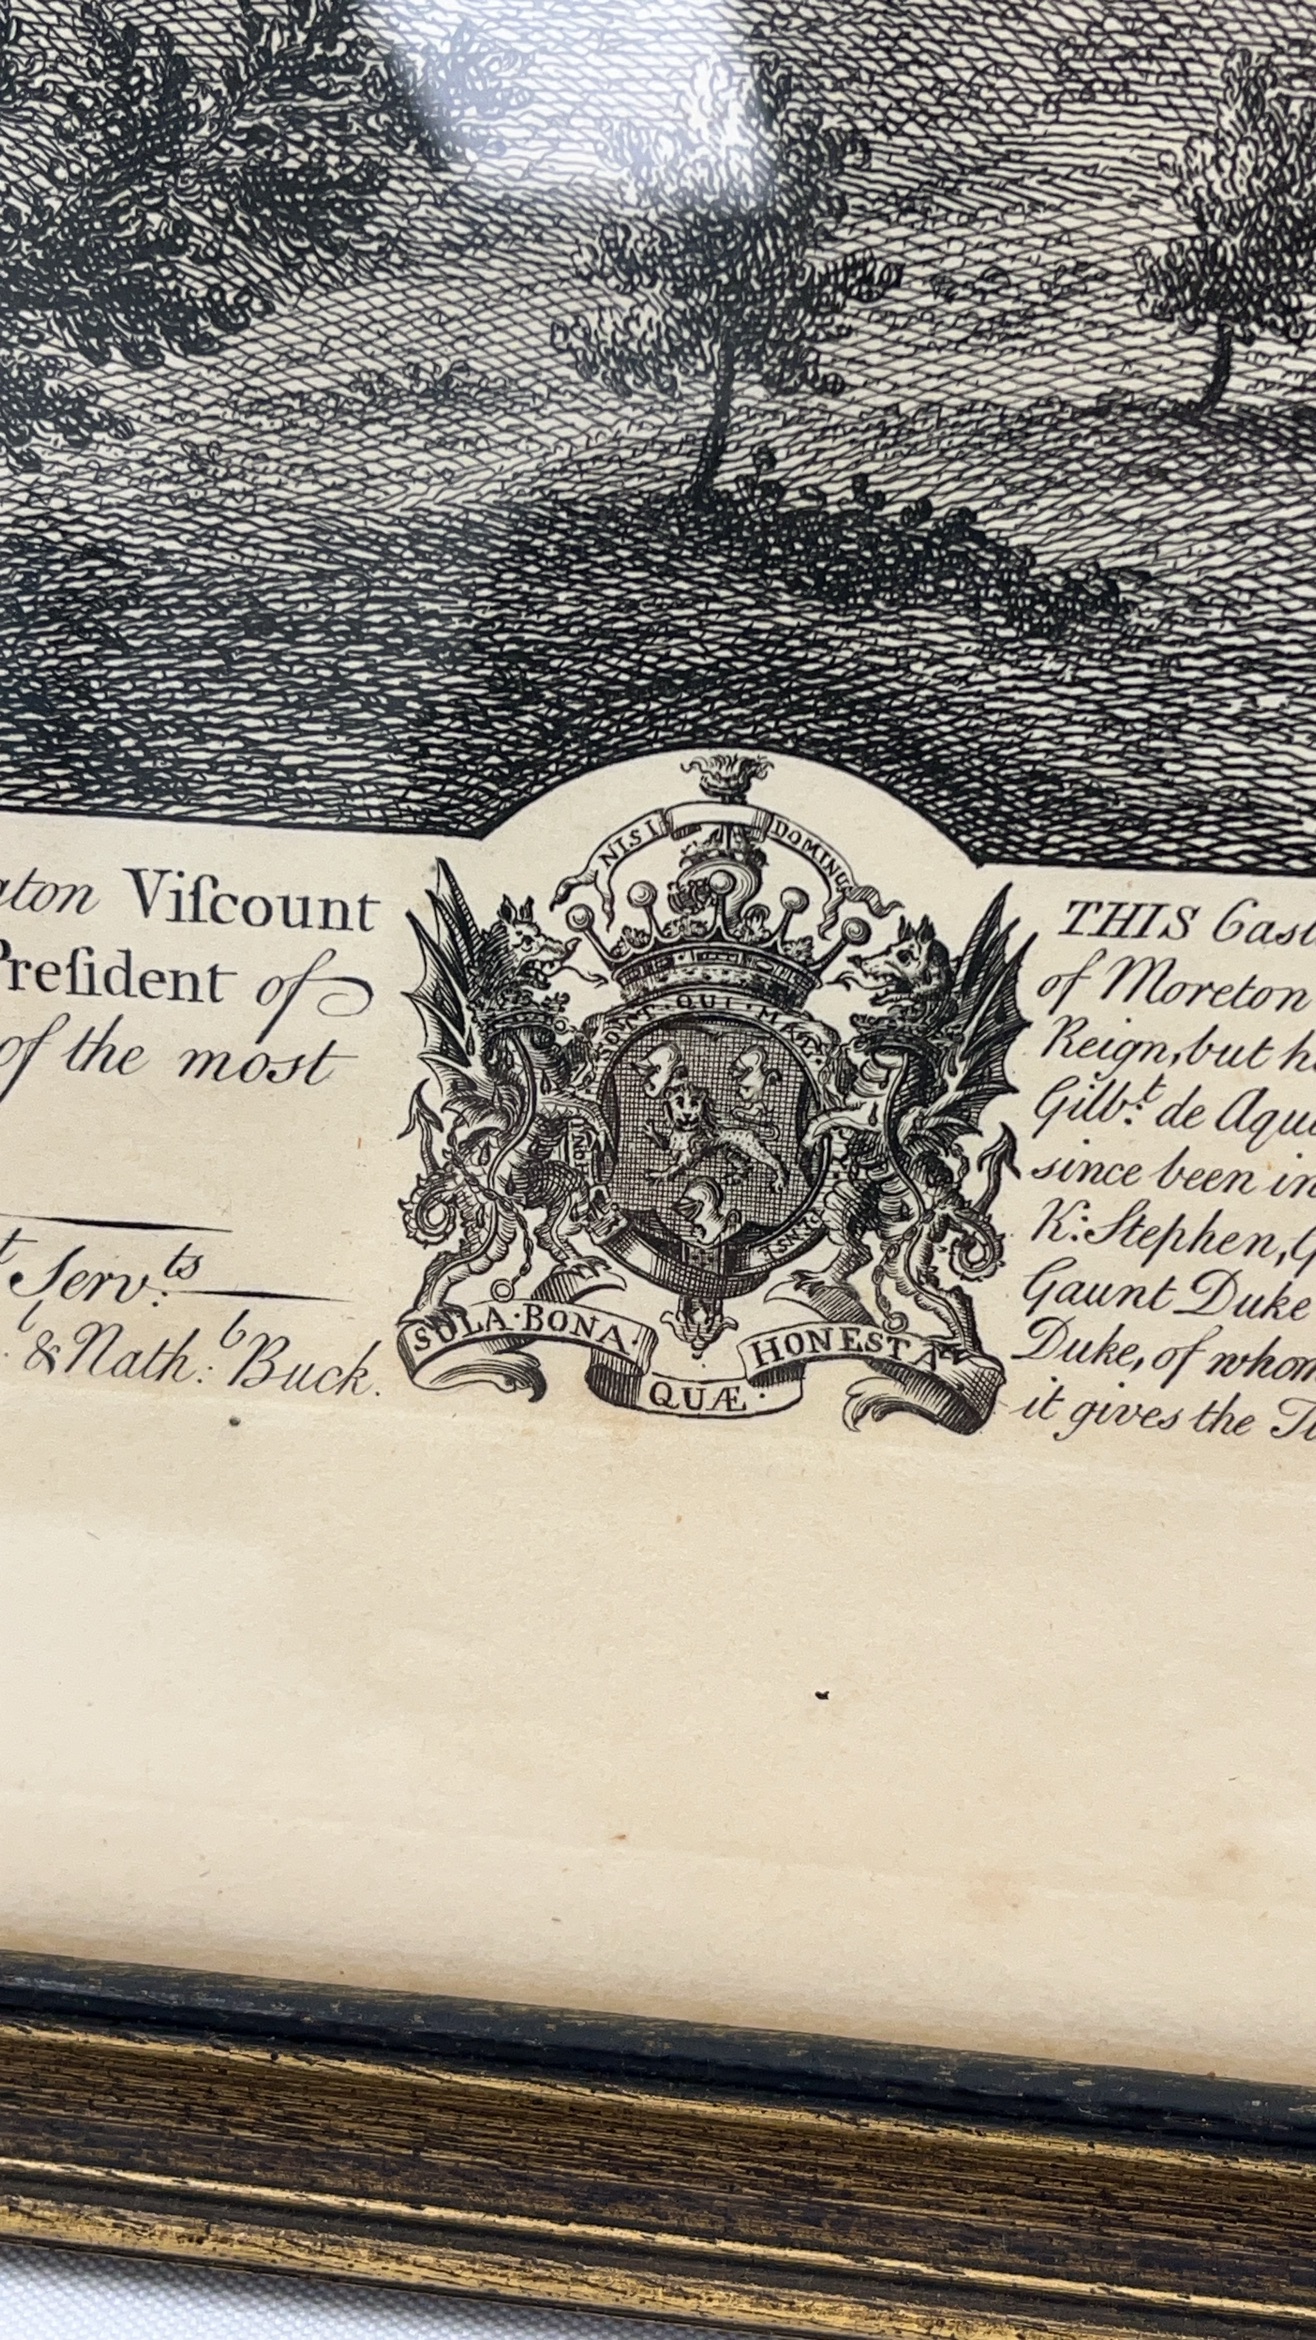 Viſcount
Preſident of
of the most
Serv.ts
& Nath:l Buck.
NISI DOMINUS
QUI MAL
SOLA·BONA·
QUÆ·
HONESTA
THIS Cast
of Moreton
Reign, but h
Gilb:t de Aqu
since been in
K: Stephen,
Gaunt Duke
Duke, of whom
it gives the Ti